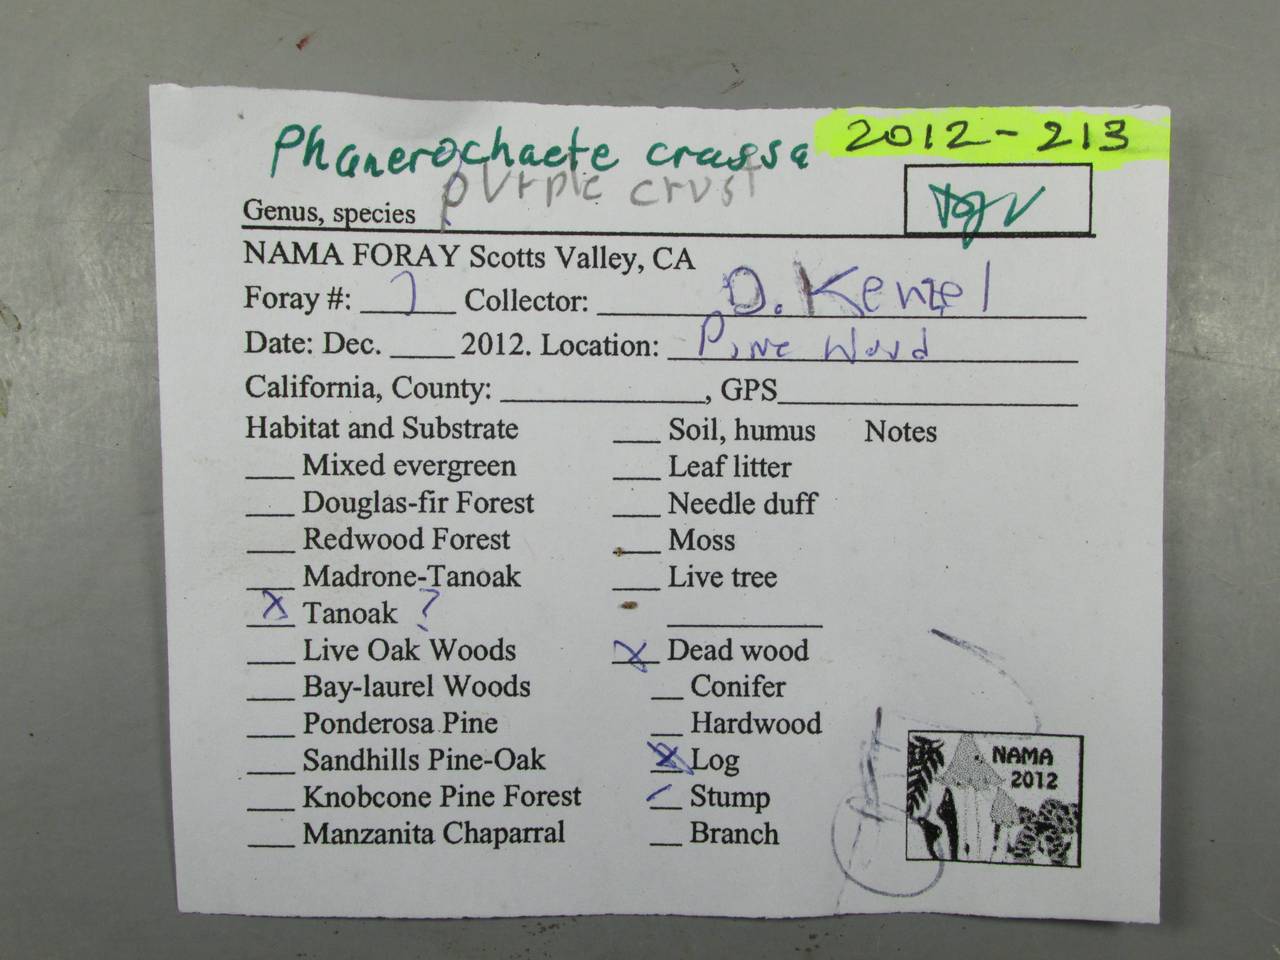 Phanerochaete crassa 2012-213
purple crust
Genus, species
NAMA FORAY Scotts Valley, CA
Foray #: 7 Collector: D. Kenzel
Date: Dec. ____ 2012. Location: Pine Wood
California, County: ____________, GPS____________
Habitat and Substrate
___ Mixed evergreen
___ Douglas-fir Forest
___ Redwood Forest
___ Madrone-Tanoak
X Tanoak ?
___ Live Oak Woods
___ Bay-laurel Woods
___ Ponderosa Pine
___ Sandhills Pine-Oak
___ Knobcone Pine Forest
___ Manzanita Chaparral
___ Soil, humus
___ Leaf litter
___ Needle duff
___ Moss
___ Live tree
X Dead wood
__ Conifer
__ Hardwood
X Log
__ Stump
__ Branch
Notes
NAMA
2012